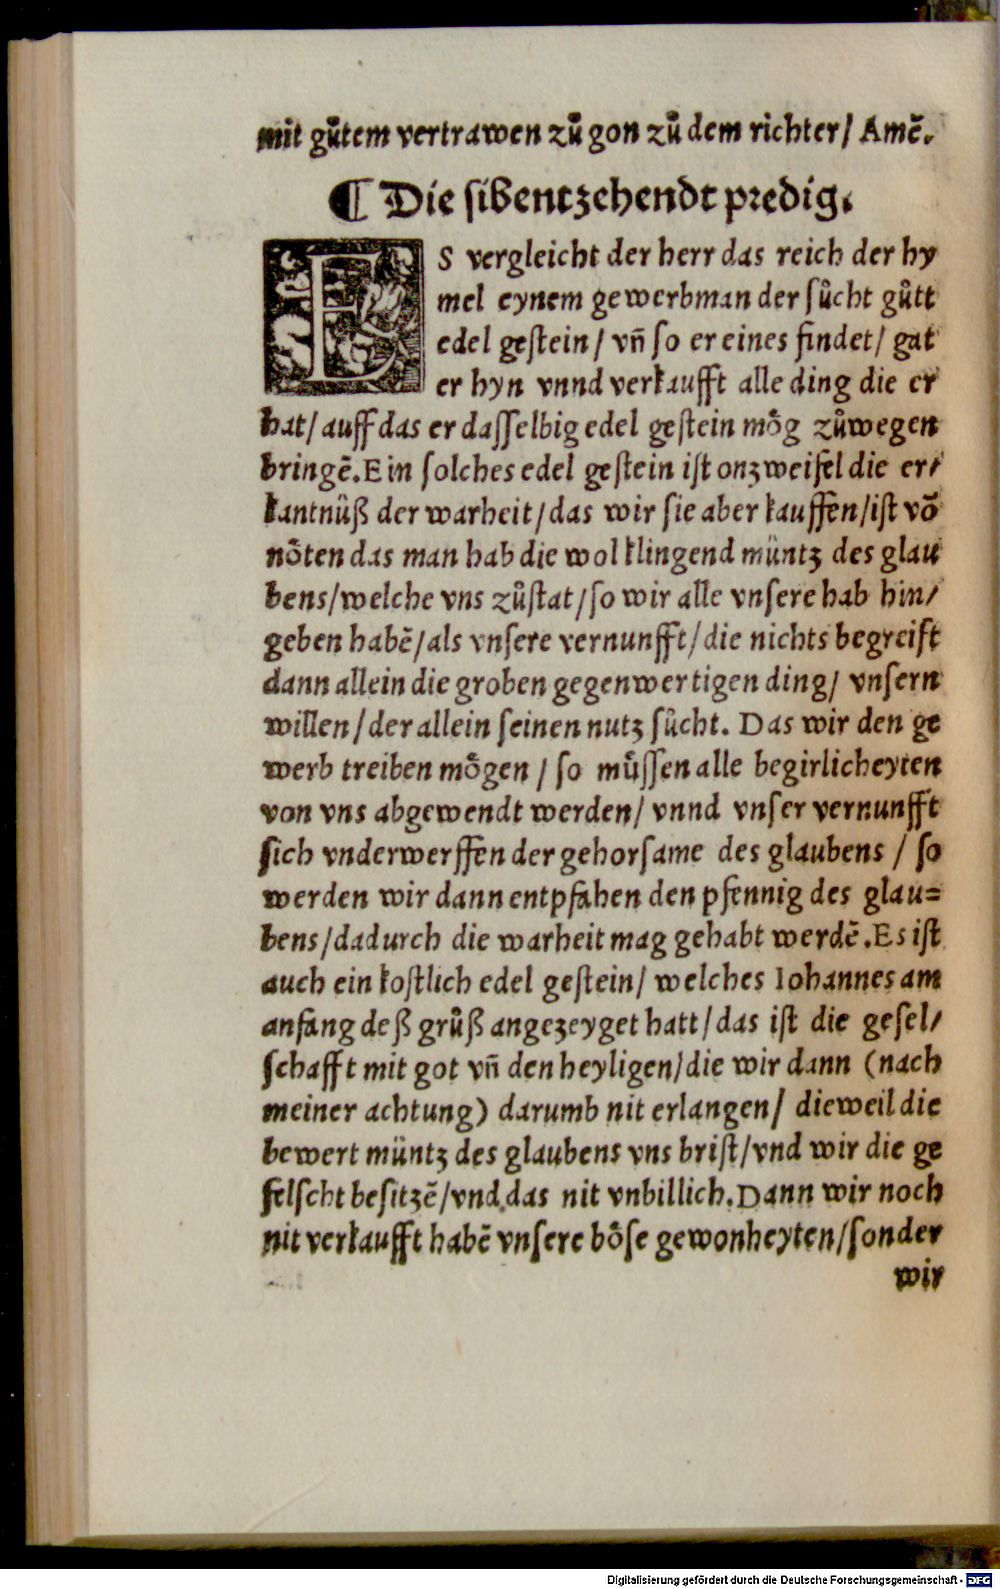 mit gůtem vertrawen zů gon zů dem richter/ Amē.
¶ Die ſibentzehendt predig.
ES vergleicht der herr das reich der hy
mel eynem gewerbman der ſůcht gůtt
edel geſtein/ vñ ſo er eines findet/ gat
er hyn vnnd verkaufft alle ding die er
hat/ auff das er daſſelbig edel geſtein moͤg zůwegen
bringē. Ein ſolches edel geſtein iſt onzweifel die er/
kantnüß der warheit/ das wir ſie aber kauffen/ iſt vō
noͤten das man hab die wol klingend müntz des glau
bens/ welche vns zůſtat/ ſo wir alle vnſere hab hin/
geben habē/ als vnſere vernunfft/ die nichts begreift
dann allein die groben gegenwertigen ding/ vnſern
willen/ der allein ſeinen nutz ſůcht. Das wir den ge
werb treiben moͤgen / ſo můſſen alle begirlicheyten
von vns abgewendt werden/ vnnd vnſer vernunfft
ſich vnderwerffen der gehorſame des glaubens / ſo
werden wir dann entpfahen den pfennig des glau=
bens/ dadurch die warheit mag gehabt werdē. Es iſt
auch ein koſtlich edel geſtein/ welches Iohannes am
anfang deß grůß angezeyget hatt/ das iſt die geſel/
ſchafft mit got vñ den heyligen/ die wir dann (nach
meiner achtung) darumb nit erlangen/ dieweil die
bewert müntz des glaubens vns briſt/ vnd wir die ge
felſcht beſitzē/ vnd das nit vnbillich. Dann wir noch
nit verkaufft habē vnſere boͤſe gewonheyten/ ſonder
wir
Digitalisierung gefördert durch die Deutsche Forschungsgemeinschaft - DFG